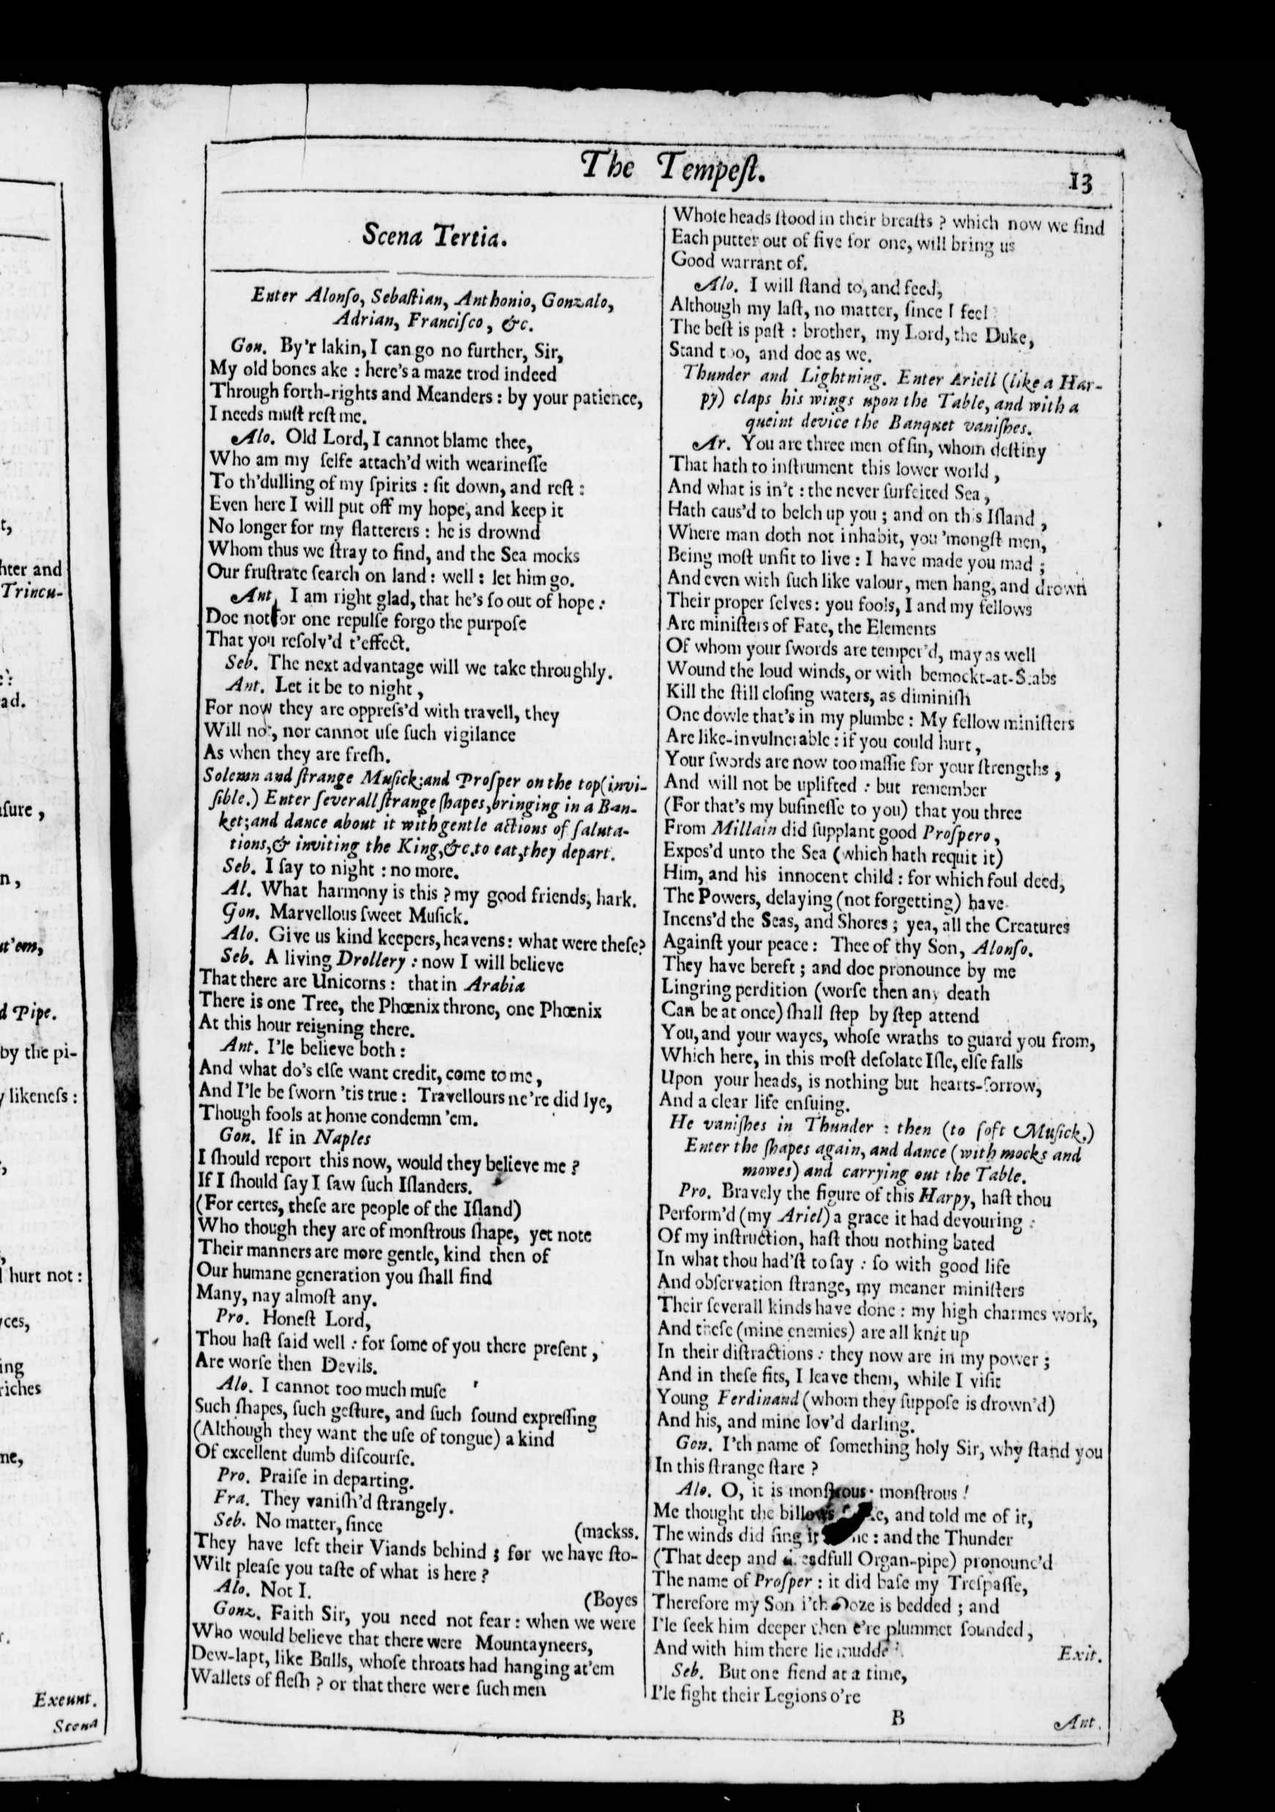 t,
hter and
Trincu-
ad.
sure,
n,
ut'em,
d Pipe.
by the pi-
likeness:
hurt not:
ces,
ing
riches
ne,
r.
Exeunt.
Scena
The Tempeſt.
13
Scena Tertia.
Enter Alonſo, Sebaſtian, Anthonio, Gonzalo,
Adrian, Franciſco, &c.
Gon. By'r lakin, I can go no further, Sir,
My old bones ake : here's a maze trod indeed
Through forth-rights and Meanders : by your patience,
I needs muſt reſt me.
Alo. Old Lord, I cannot blame thee,
Who am my ſelfe attach'd with wearineſſe
To th'dulling of my ſpirits : ſit down, and reſt :
Even here I will put off my hope, and keep it
No longer for my flatterers : he is drownd
Whom thus we ſtray to find, and the Sea mocks
Our fruſtrate ſearch on land : well : let him go.
Ant. I am right glad, that he's ſo out of hope :
Doe not for one repulſe forgo the purpoſe
That you reſolv'd t'effect.
Seb. The next advantage will we take throughly.
Ant. Let it be to night,
For now they are oppreſs'd with travell, they
Will not, nor cannot uſe ſuch vigilance
As when they are freſh.
Solemn and ſtrange Muſick; and Proſper on the top (invi-
ſible.) Enter ſeverall ſtrange ſhapes, bringing in a Ban-
ket; and dance about it with gentle actions of ſaluta-
tions, & inviting the King, &c. to eat, they depart.
Seb. I ſay to night : no more.
Al. What harmony is this ? my good friends, hark.
Gon. Marvellous ſweet Muſick.
Alo. Give us kind keepers, heavens : what were theſe?
Seb. A living Drollery : now I will believe
That there are Unicorns : that in Arabia
There is one Tree, the Phœnix throne, one Phœnix
At this hour reigning there.
Ant. I'le believe both :
And what do's elſe want credit, come to me,
And I'le be ſworn 'tis true : Travellours ne're did lye,
Though fools at home condemn 'em.
Gon. If in Naples
I ſhould report this now, would they believe me ?
If I ſhould ſay I ſaw ſuch Iſlanders.
(For certes, theſe are people of the Iſland)
Who though they are of monſtrous ſhape, yet note
Their manners are more gentle, kind then of
Our humane generation you ſhall find
Many, nay almoſt any.
Pro. Honeſt Lord,
Thou haſt ſaid well : for ſome of you there preſent,
Are worſe then Devils.
Alo. I cannot too much muſe
Such ſhapes, ſuch geſture, and ſuch ſound expreſſing
(Although they want the uſe of tongue) a kind
Of excellent dumb diſcourſe.
Pro. Praiſe in departing.
Fra. They vaniſh'd ſtrangely.
Seb. No matter, ſince (mackss.
They have left their Viands behind ; for we have ſto-
Wilt pleaſe you taſte of what is here ?
Alo. Not I. (Boyes
Gonz. Faith Sir, you need not fear : when we were
Who would believe that there were Mountayneers,
Dew-lapt, like Bulls, whoſe throats had hanging at'em
Wallets of fleſh ? or that there were ſuch men
Whoſe heads ſtood in their breaſts ? which now we find
Each putter out of five for one, will bring us
Good warrant of.
Alo. I will ſtand to, and feed,
Although my laſt, no matter, ſince I feel
The beſt is paſt : brother, my Lord, the Duke,
Stand too, and doe as we.
Thunder and Lightning. Enter Ariell (like a Har-
py) claps his wings upon the Table, and with a
queint device the Banquet vaniſhes.
Ar. You are three men of ſin, whom deſtiny
That hath to inſtrument this lower world,
And what is in't : the never ſurfeited Sea,
Hath caus'd to belch up you ; and on this Iſland,
Where man doth not inhabit, you 'mongſt men,
Being moſt unfit to live : I have made you mad ;
And even with ſuch like valour, men hang, and drown
Their proper ſelves : you fools, I and my fellows
Are miniſters of Fate, the Elements
Of whom your ſwords are temper'd, may as well
Wound the loud winds, or with bemockt-at-Stabs
Kill the ſtill cloſing waters, as diminiſh
One dowle that's in my plumbe : My fellow miniſters
Are like-invulnerable : if you could hurt,
Your ſwords are now too maſſie for your ſtrengths,
And will not be uplifted : but remember
(For that's my buſineſſe to you) that you three
From Millain did ſupplant good Proſpero,
Expos'd unto the Sea (which hath requit it)
Him, and his innocent child : for which foul deed,
The Powers, delaying (not forgetting) have
Incens'd the Seas, and Shores ; yea, all the Creatures
Againſt your peace : Thee of thy Son, Alonſo.
They have bereft ; and doe pronounce by me
Lingring perdition (worſe then any death
Can be at once) ſhall ſtep by ſtep attend
You, and your wayes, whoſe wraths to guard you from,
Which here, in this moſt deſolate Iſle, elſe falls
Upon your heads, is nothing but hearts-ſorrow,
And a clear life enſuing.
He vaniſhes in Thunder : then (to ſoft Muſick.)
Enter the ſhapes again, and dance (with mocks and
mowes) and carrying out the Table.
Pro. Bravely the figure of this Harpy, haſt thou
Perform'd (my Ariel) a grace it had devouring :
Of my inſtruction, haſt thou nothing bated
In what thou had'ſt to ſay : ſo with good life
And obſervation ſtrange, my meaner miniſters
Their ſeverall kinds have done : my high charmes work,
And theſe (mine enemies) are all knit up
In their diſtractions : they now are in my power ;
And in theſe fits, I leave them, while I viſit
Young Ferdinand (whom they ſuppoſe is drown'd)
And his, and mine lov'd darling.
Gon. I'th name of ſomething holy Sir, why ſtand you
In this ſtrange ſtare ?
Alo. O, it is monſtrous : monſtrous !
Me thought the billows and told me of it,
The winds did ſing it : and the Thunder
(That deep and dreadfull Organ-pipe) pronounc'd
The name of Proſper : it did baſe my Treſpaſſe,
Therefore my Son i'th Ooze is bedded ; and
I'le ſeek him deeper then e're plummet ſounded,
And with him there lie mudded. Exit.
Seb. But one fiend at a time,
I'le fight their Legions o're
B
Ant.